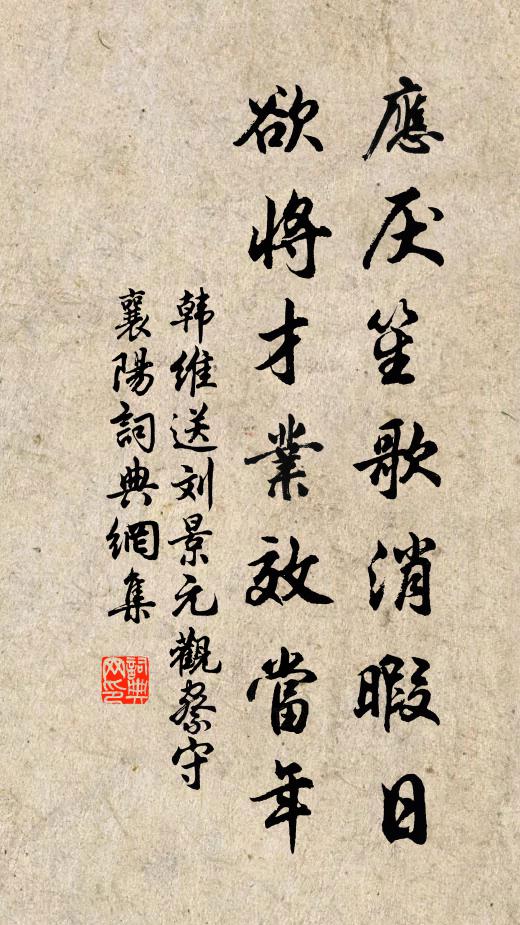 應厌笙歌消暇日
欲將才業效當年
韩維送刘景元觀察守
襄陽詞典網集
詞典
网印